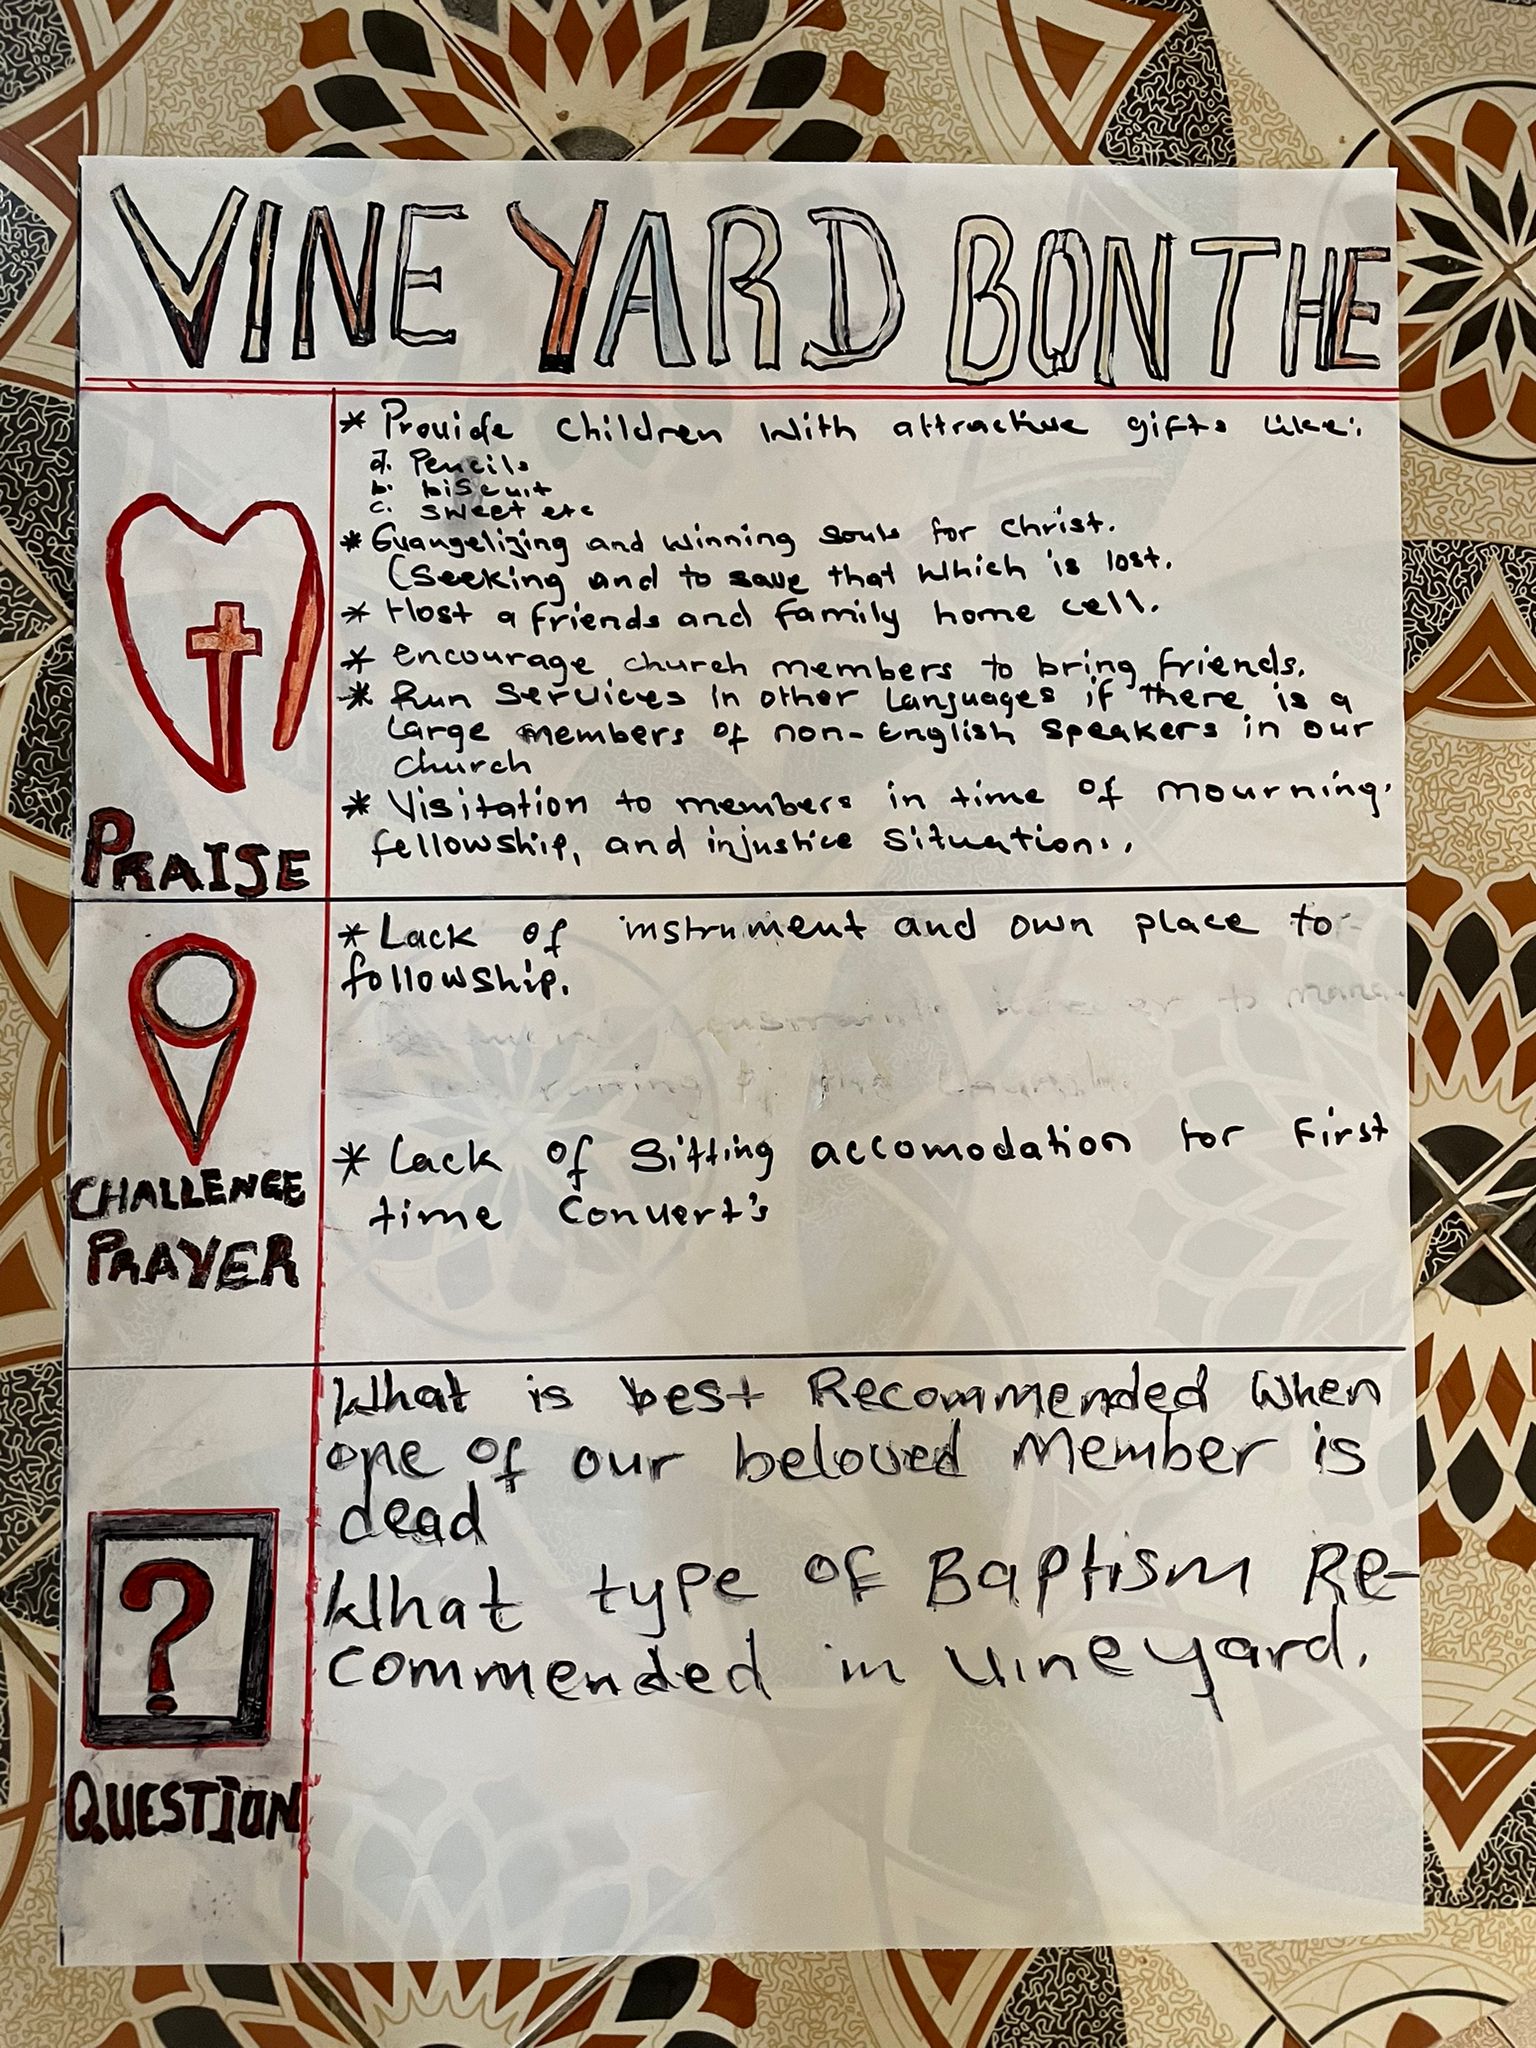 VINE YARD BONTHE
* Provide children with attractive gifts like:
a. Pencils
b. biscuit
c. sweet etc
* Evangelizing and winning souls for Christ.
(Seeking and to save that which is lost.
* Host a friends and family home cell.
* encourage church members to bring friends.
* Run Services in other languages if there is a
large members of non-English speakers in our
church
* Visitation to members in time of mourning,
fellowship, and injustice situation..
PRAISE
* Lack of instrument and own place to
followship.
to
running of the
* Lack of Sitting accomodation for First
time Convert's
CHALLENGE
PRAYER
What is best Recommended When
one of our beloved Member is
dead
What type of Baptism Re-
commended in Vineyard.
?
QUESTION